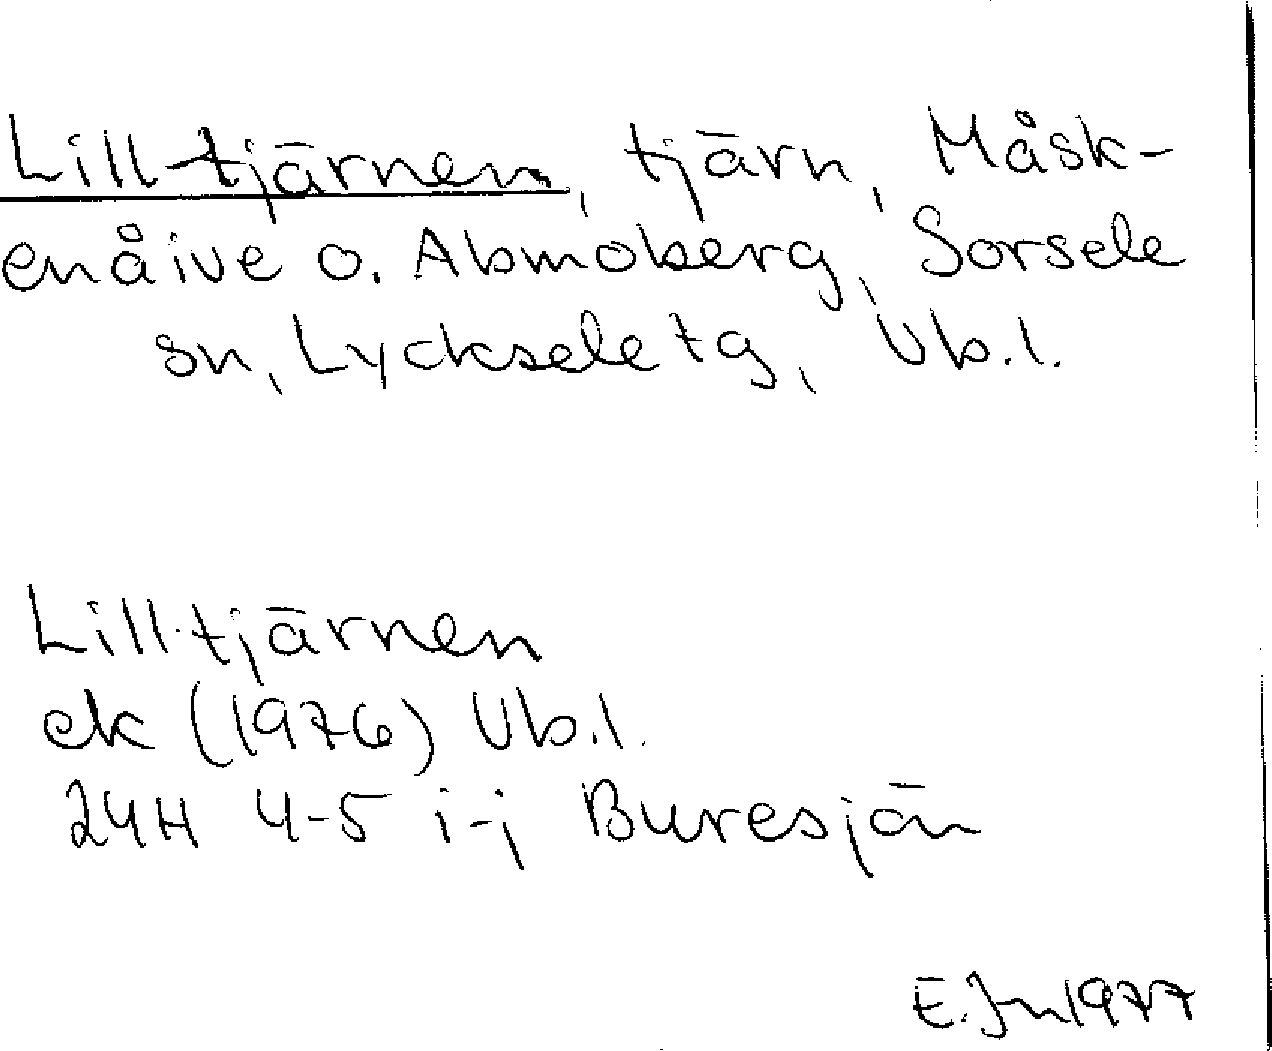 Lill-tjärnen, tjärn, Måsk-
enåive o. Abmoberg, Sorsele
sn, Lycksele tg, Vb.l.
Lill-tjärnen
ek (1976) Vb.l.
24H 4-5 i-j Buresjön
E.Jn 1977